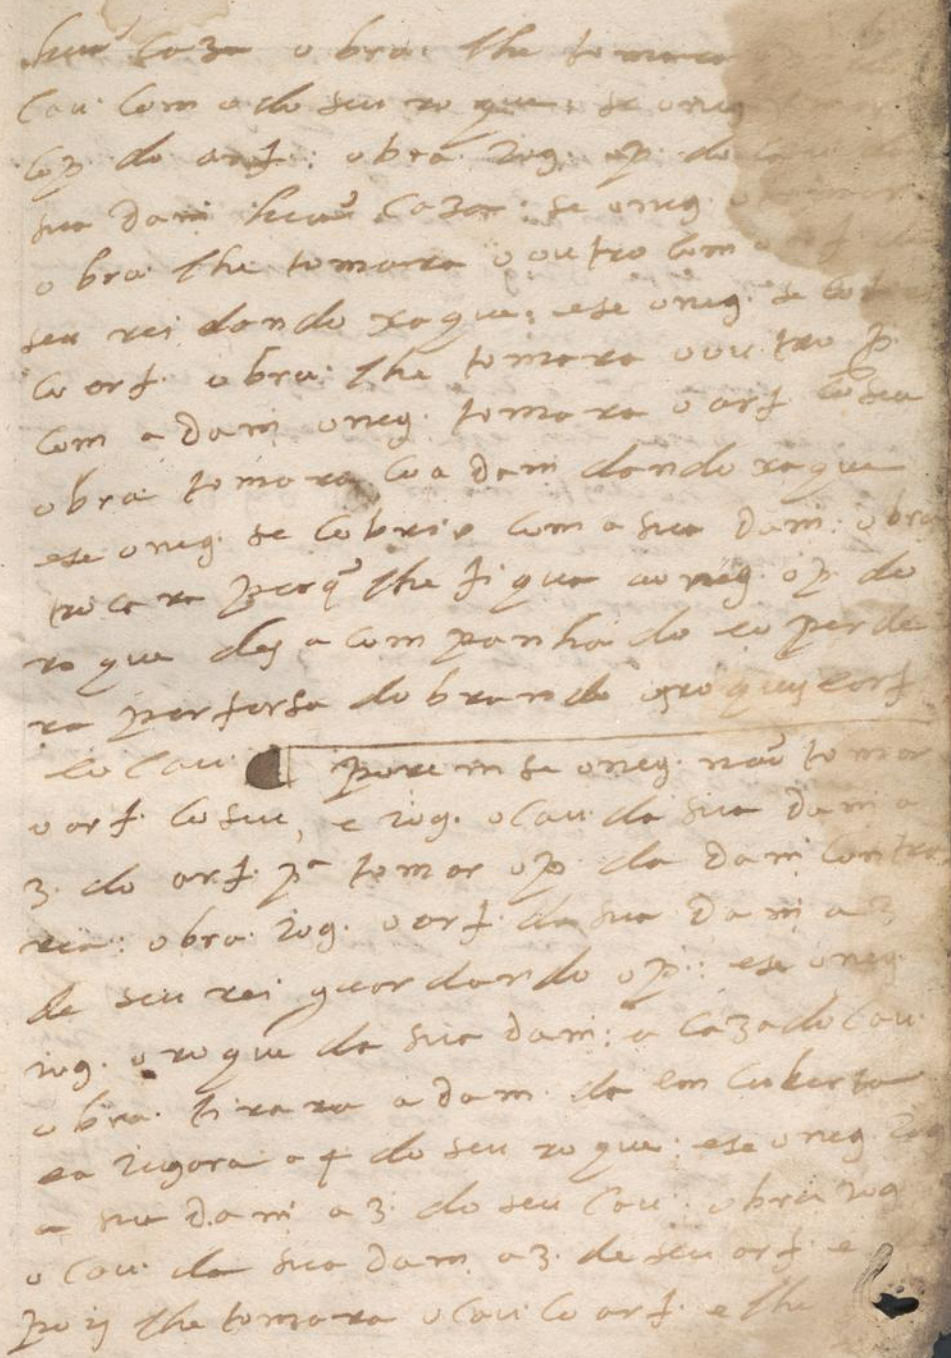 huã caza o bra. lhe tomara
cau. com a do seu roque: se o neg.
cõ p. do arf.: o bra. Jog. o p. do
sua dam huã caza: se o neg.
o bra. lhe tomara o outro com
seu rei dando xaque: e se o neg. se cob
co arf. o bra: lhe tomara o outro p.
com a dam o neg. tomara o arf co seu
o bra. tomara co a dam dando xaque
e se o neg. se cobrir com a sua dam: o bra
trocara porq̃ lhe fiqua ao neg. o p. do
roque des acompanhado e o perde
ra per forsa dobrando os roques e o arf
e o cau. porem se o neg. naũ tomar
o arf. co seu, e Jog. o cau. da sua dam a
3. do arf. pª tomar o p. da dam contra
ria: o bra. Jog. o arf. da sua dam a 3
de seu rei guardando o p.: e se o neg.
iog. o roque da sua dam: a caza do cau.
o bra. tirara a dam. da emcuberta
e a Jugara a 4 do seu roque: e se o neg. Jog
a sua dam a 3. do seu cau: o bra Jog
o cau. da sua dam a 3. de seu arf. e
pois lhe tomara o cau. co arf. e lhe